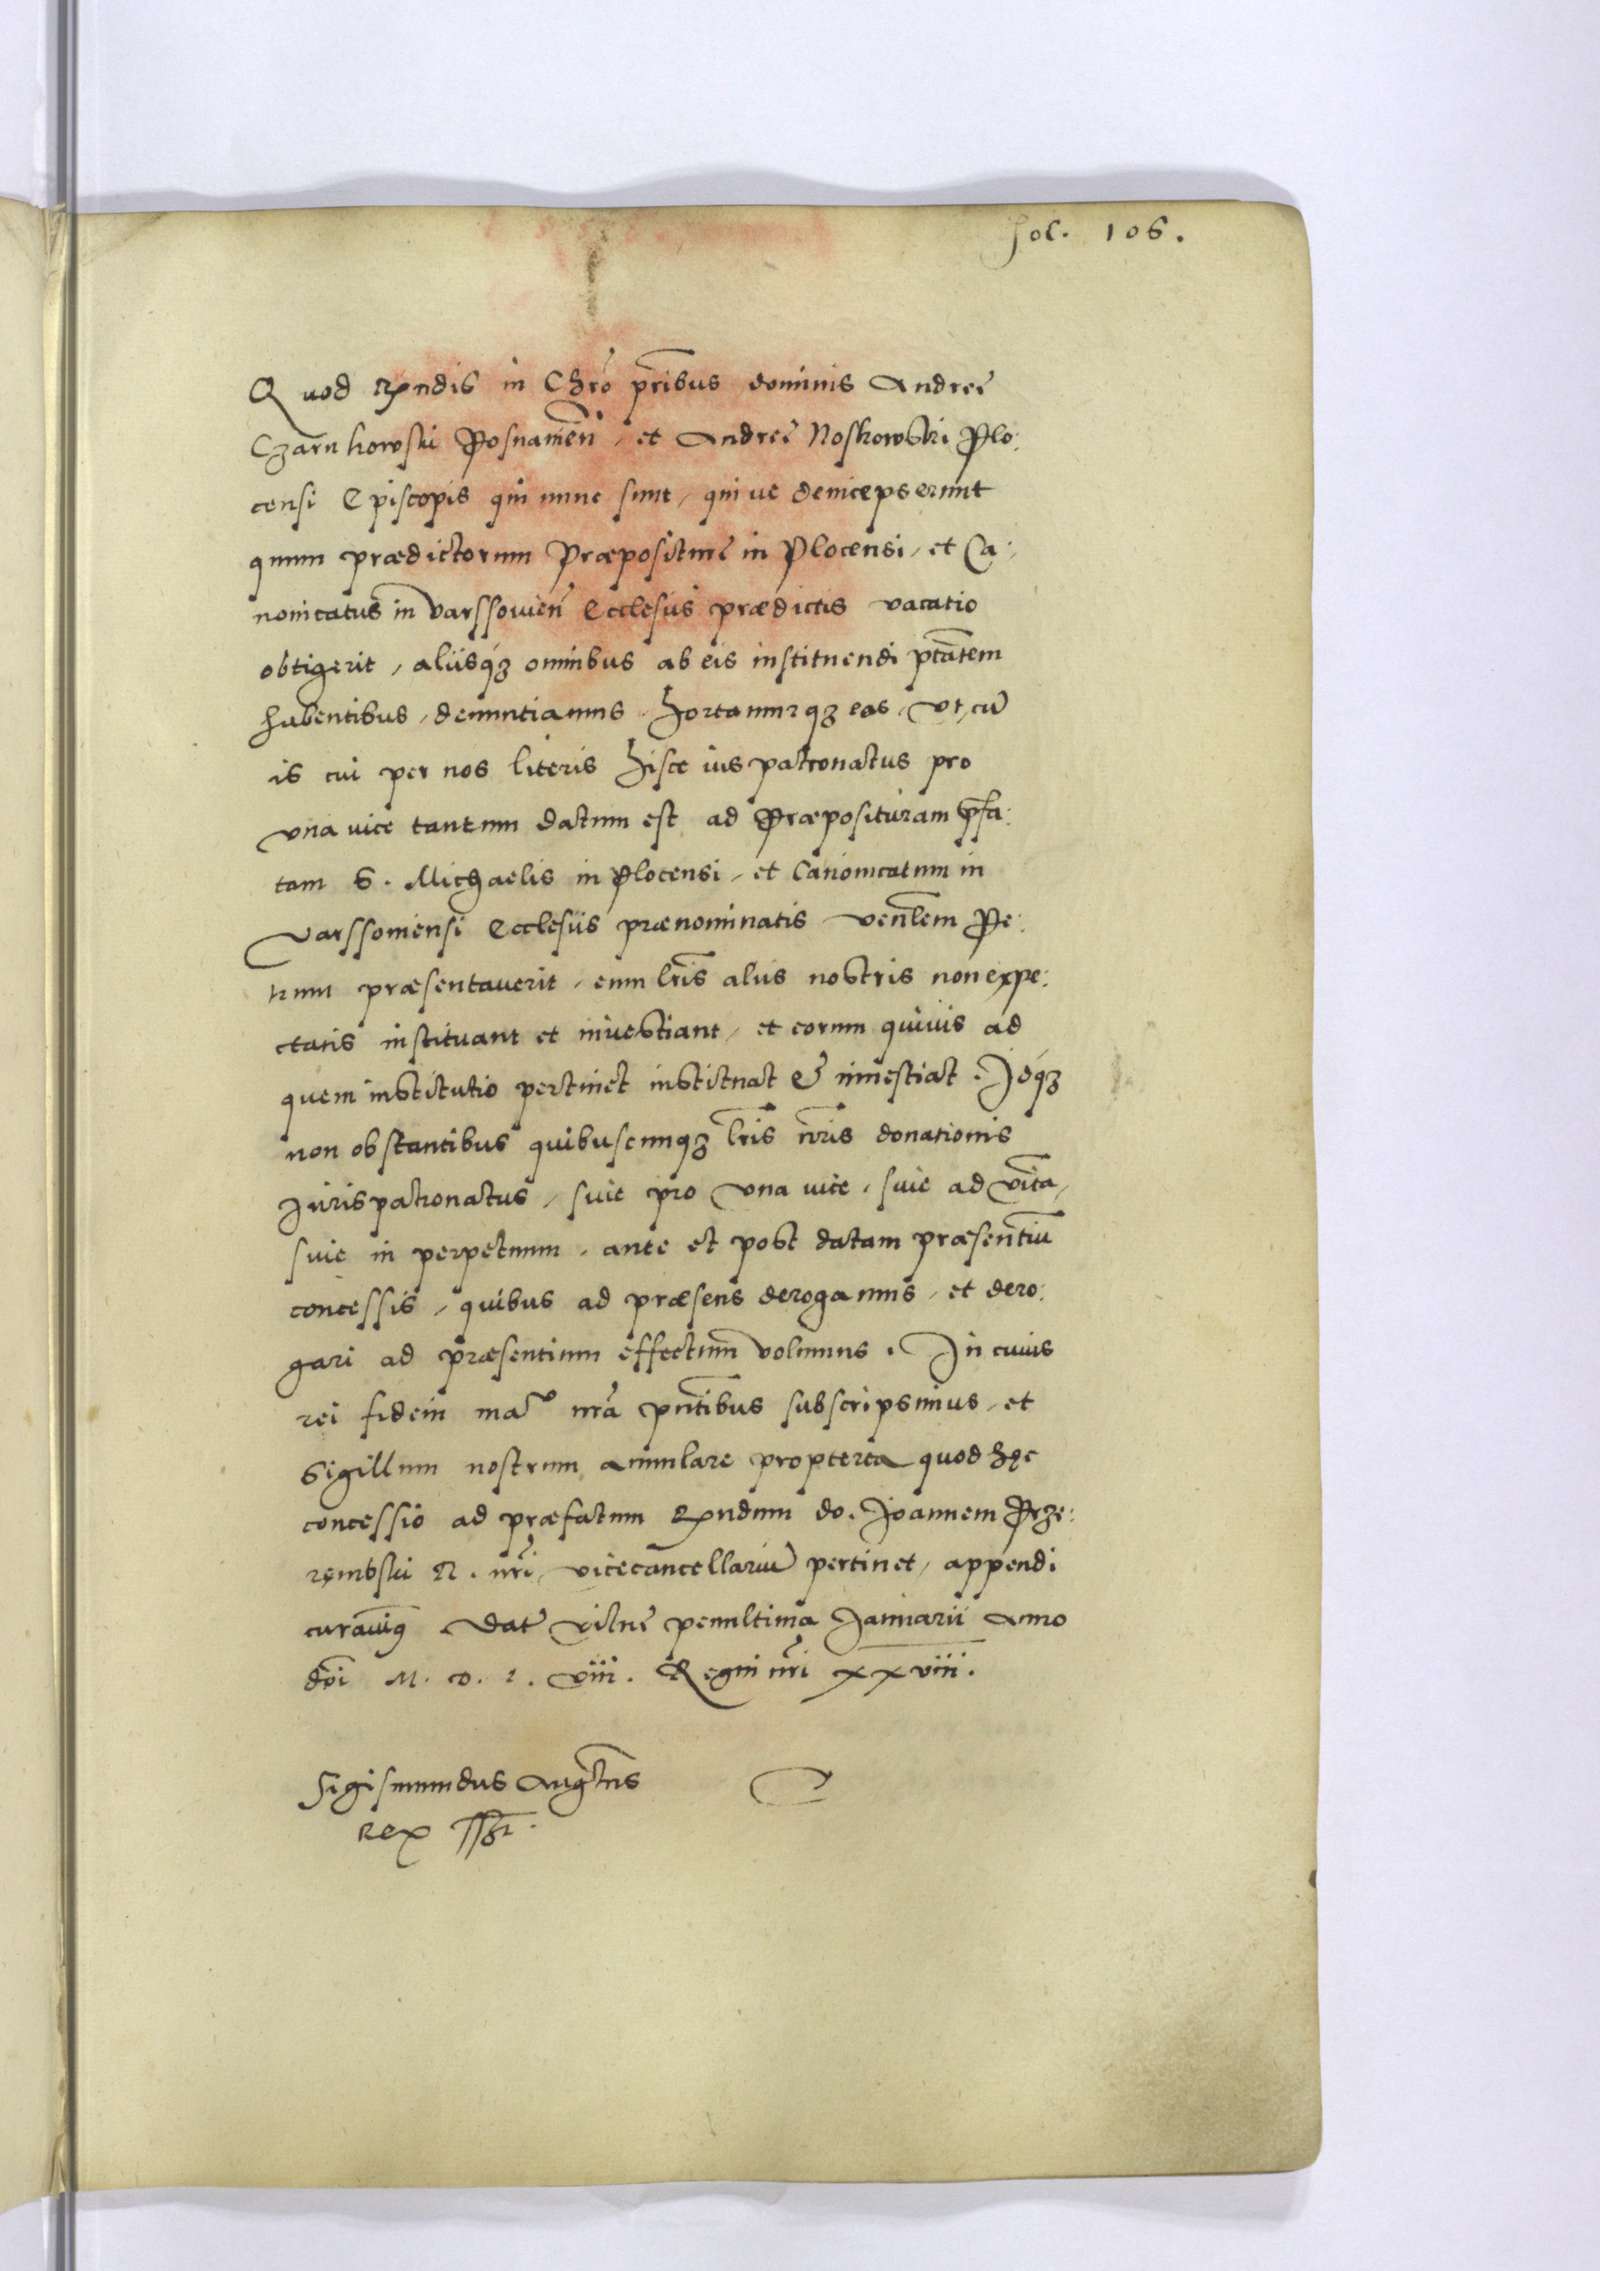 fol. 106.
Quod Rxndis in Chro pribus dominis Andreę
Czarnkowski Posnamen, et Andreę Noskowski Plo:
censi Episcopis qui nunc sunt, qui ve deinceps erunt
quum prædictorum Præpositurę in Plocensi, et Ca:
nonicatus in Varssowien Ecclesiis prædictis vacatio
obtigerit, aliisq3 omnibus ab eis instituendi ptatem
habentibus, denuntiamus hortamurq3 eos, vt, cu
is cui per nos literis hisce ius patronatus pro
vna vice tantum datum est ad Præposituram pfa:
tam S. Michaelis in Plocensi, et Canonicatum in
Varssoviensi Ecclesiis prænominatis venlem Pe:
trum præsentaverit, eum lris aliis nostris non expe:
ctatis instituant et investiant, et eorum quivis ad
quem institutio pertinet instituat & investiat. Idq3
non obstantibus quibuscunq3 lris nris donationis
Jurispatronatus, sive pro vna vice, sive ad vita,
sive in perpetuum, ante et post datam præsentiu
concessis, quibus ad præsens derogamus, et dero:
gari ad præsentium effectum volumus. In cuius
rei fidem manu nra pntibus subscripsimus, et
Sigillum nostrum annulare propterea quod hęc
concessio ad præfatum Rxndum do. Joannem Prze:
rembski R. nri vicecancellariu pertinet, appendi
curavimus Dat Vilnę penultima Januarii Anno
doi M. D. L. viii. Regni nri xxviii.
Sigismundus Augtus
Rex ssst.